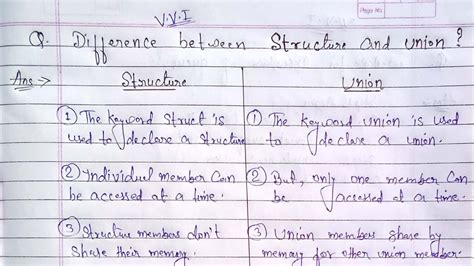 V.V.I
Page No.
Q. Difference between Structure and union?
Ans :→ Structure Union
① The keyword Struct is
used to declare a structure
① The keyword union is used
to declare a union.
② Individual member can
be accessed at a time.
② But, only one member Can
be accessed at a time.
③ Structure members don't
Share their memory.
③ Union members share by
memory for other union member.